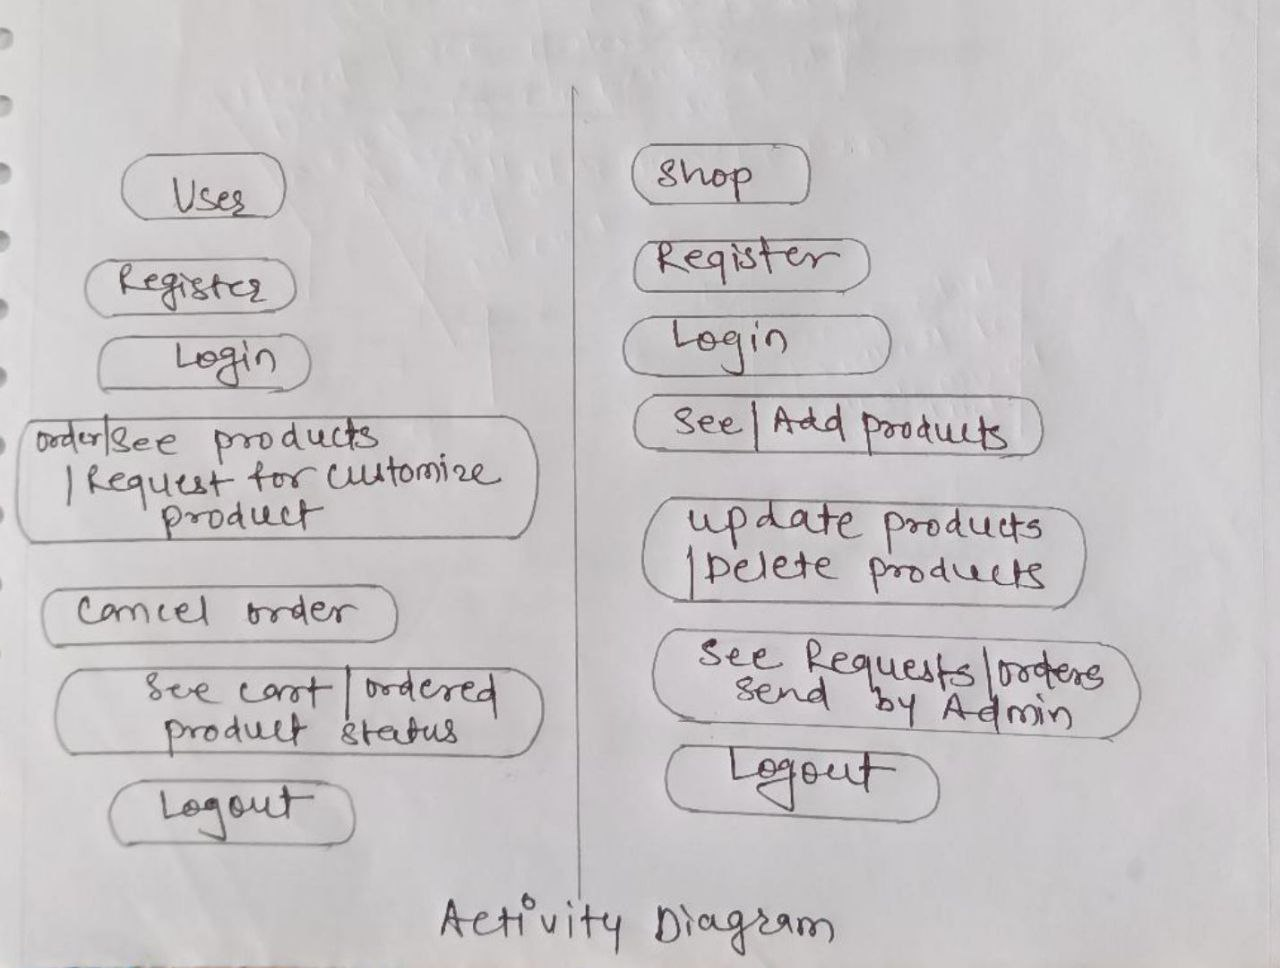 User
Register
Login
order/See products
/ Request for customize
product
cancel order
See cart / ordered
product status
Logout
Shop
Register
Login
See / Add products
update products
/ Delete products
See Requests / orders
send by Admin
Logout
Activity Diagram